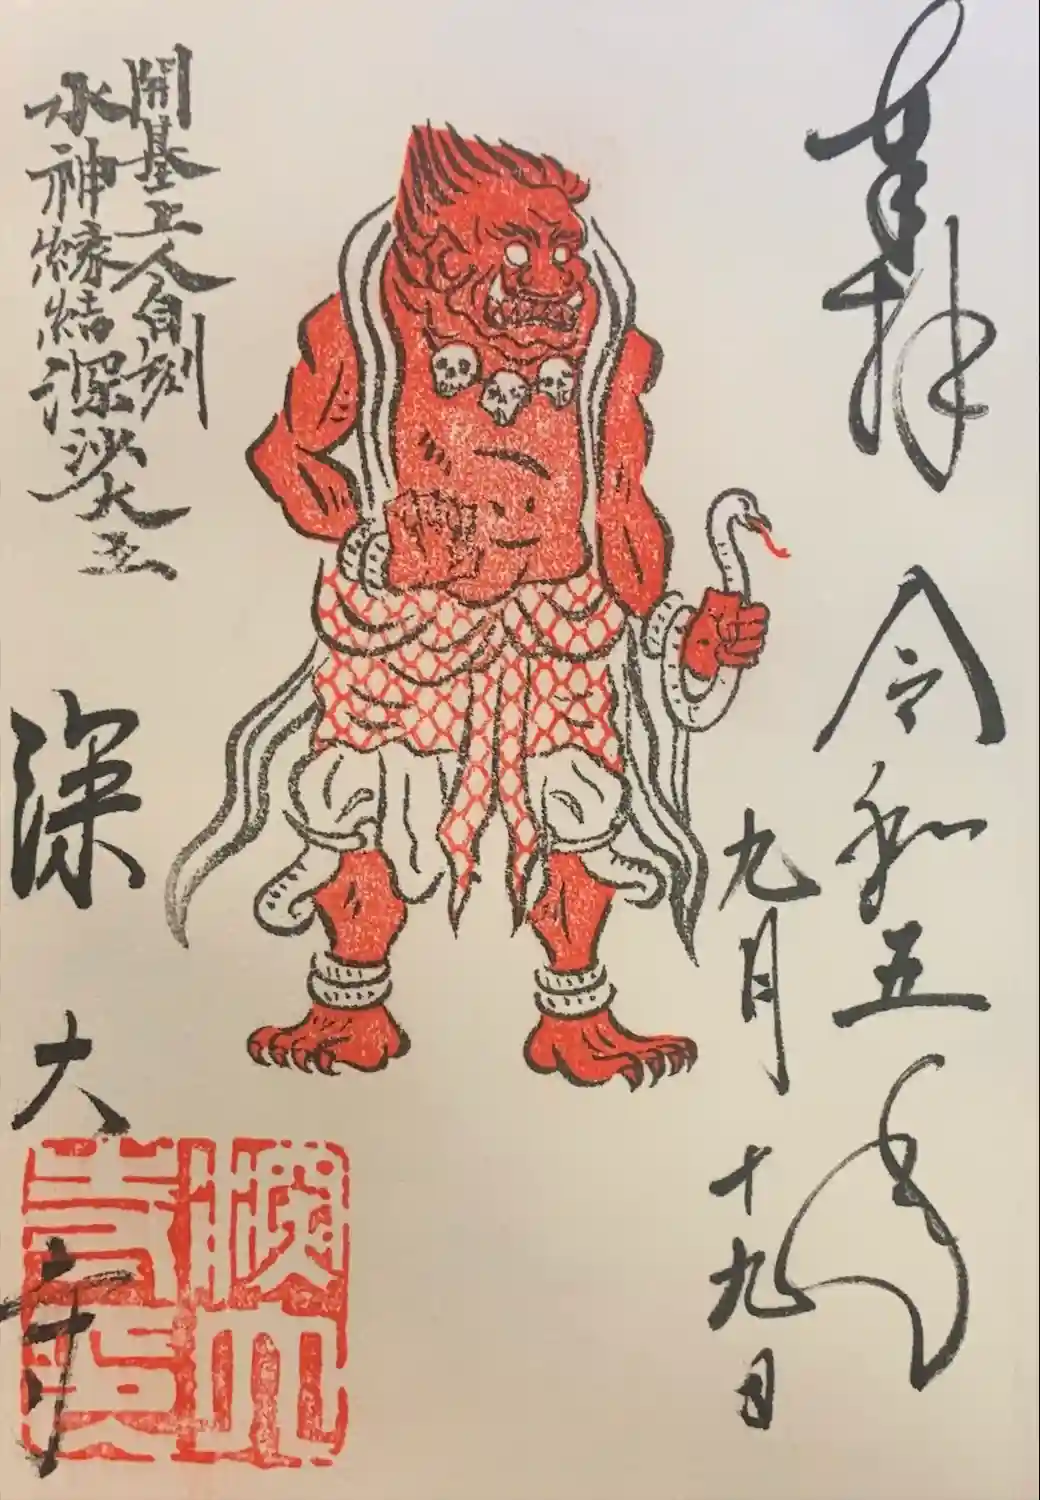 奉拝 令和五年
九月十九日
開基上人自刻
水神縁結深沙大王
深大寺
深大
寺